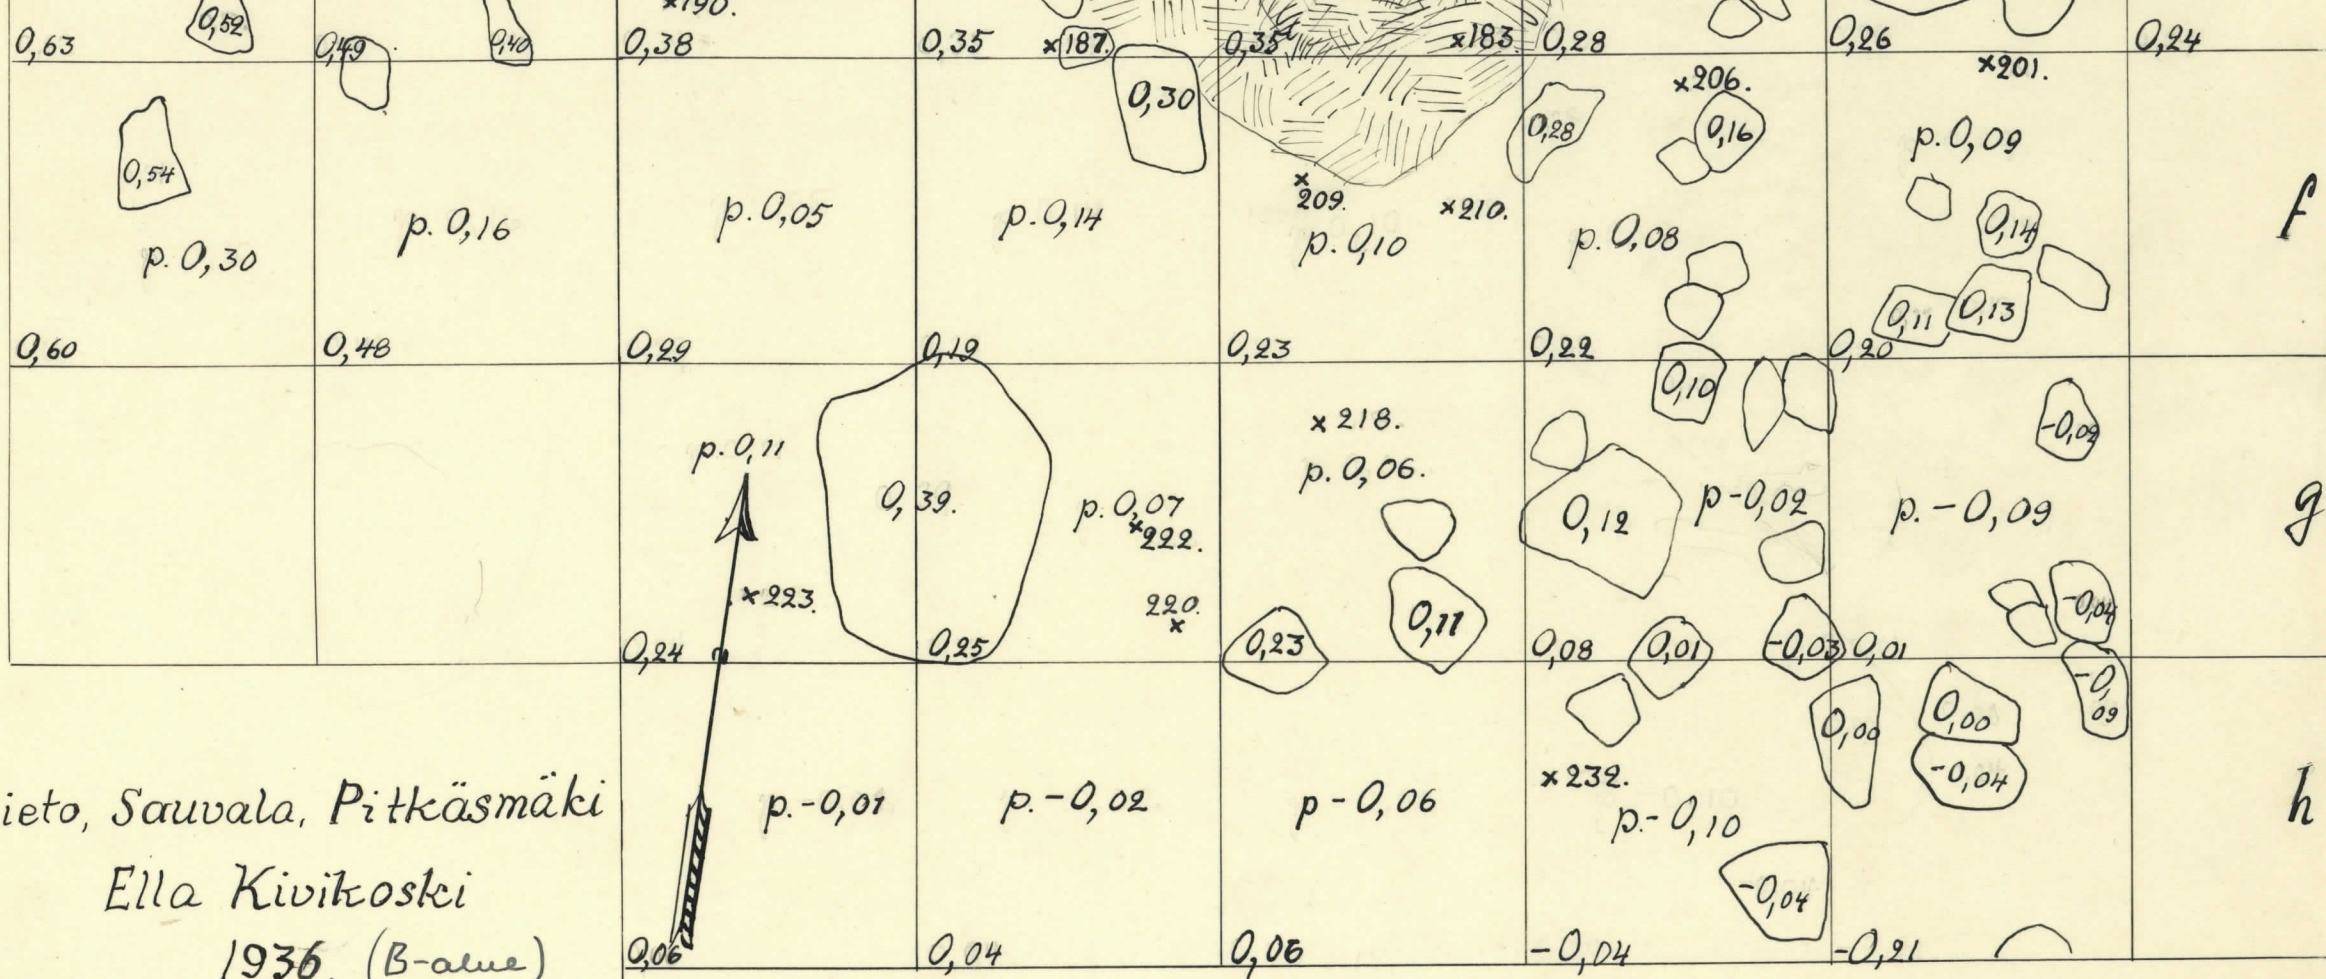 ×190.
0,52
0,63 0,49 0,40 0,38 0,35 ×187. 0,35 a ×183. 0,28 0,26 0,24
×206. ×201.
0,30 0,28 0,16 p. 0,09
0,54
×209. ×210.
p. 0,30 p. 0,16 p. 0,05 p. 0,14 p. 0,10 p. 0,08 0,14 f
0,11 0,13
0,60 0,48 0,29 0,19 0,23 0,22 0,20
0,10
×218. -0,09
p. 0,11 p. 0,06.
0,39. p. 0,07 0,12 p-0,02 p. -0,09 g
×222.
×223. 220. × 0,11 -0,04
0,24 0,25 0,23 0,08 0,01 -0,03 0,01
-0,09
0,00 0,00
×232. -0,04
ieto, Sauvala, Pitkäsmäki p.-0,01 p.-0,02 p-0,06 p.-0,10 h
Ella Kivikoski -0,04
1936. (B-alue) 0,06 0,04 0,06 -0,04 -0,21